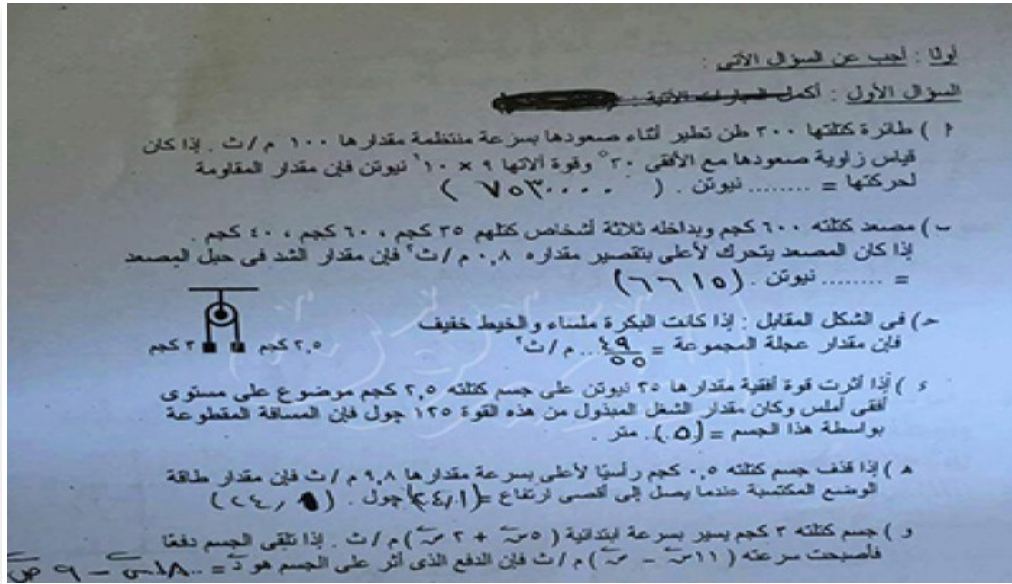 أولا : أجب عن السؤال الآتى :
السؤال الأول : أكمل العبارات الآتية :
أ ) طائرة كتلتها ٣٠٠ طن تطير أثناء صعودها بسرعة منتظمة مقدارها ١٠٠ م / ث . إذا كان
قياس زاوية صعودها مع الأفقى ٣٠° وقوة آلاتها ٩ × ١٠٦ نيوتن فإن مقدار المقاومة
لحركتها = ........ نيوتن . ( ٧٥٣٠٠٠٠ )
ب ) مصعد كتلته ٦٠٠ كجم وبداخله ثلاثة أشخاص كتلهم ٣٥ كجم ، ٦٠ كجم ، ٤٠ كجم .
إذا كان المصعد يتحرك لأعلى بتقصير مقداره ٠,٨ م / ث٢ فإن مقدار الشد فى حبل المصعد
= ........ نيوتن . (٦٦١٥)
حـ ) فى الشكل المقابل : إذا كانت البكرة ملساء والخيط خفيف
فإن مقدار عجلة المجموعة = ٤٩/٥٥ ... م / ث٢
٢,٥ كجم ٣ كجم
ء ) إذا أثرت قوة أفقية مقدارها ٢٥ نيوتن على جسم كتلته ٢,٥ كجم موضوع على مستوى
أفقى أملس وكان مقدار الشغل المبذول من هذه القوة ١٢٥ جول فإن المسافة المقطوعة
بواسطة هذا الجسم = (٥) . متر .
هـ ) إذا قذف جسم كتلته ٠,٥ كجم رأسيًا لأعلى بسرعة مقدارها ٩,٨ م / ث فإن مقدار طاقة
الوضع المكتسبة عندما يصل إلى أقصى ارتفاع = (٢٤,١) جول .
و ) جسم كتلته ٣ كجم يسير بسرعة ابتدائية ( ٥ س + ٢ ص ) م / ث . إذا تلقى الجسم دفعًا
فأصبحت سرعته ( ١١ س - ص ) م / ث فإن الدفع الذى أثر على الجسم هو د = ١٨ س - ٩ ص